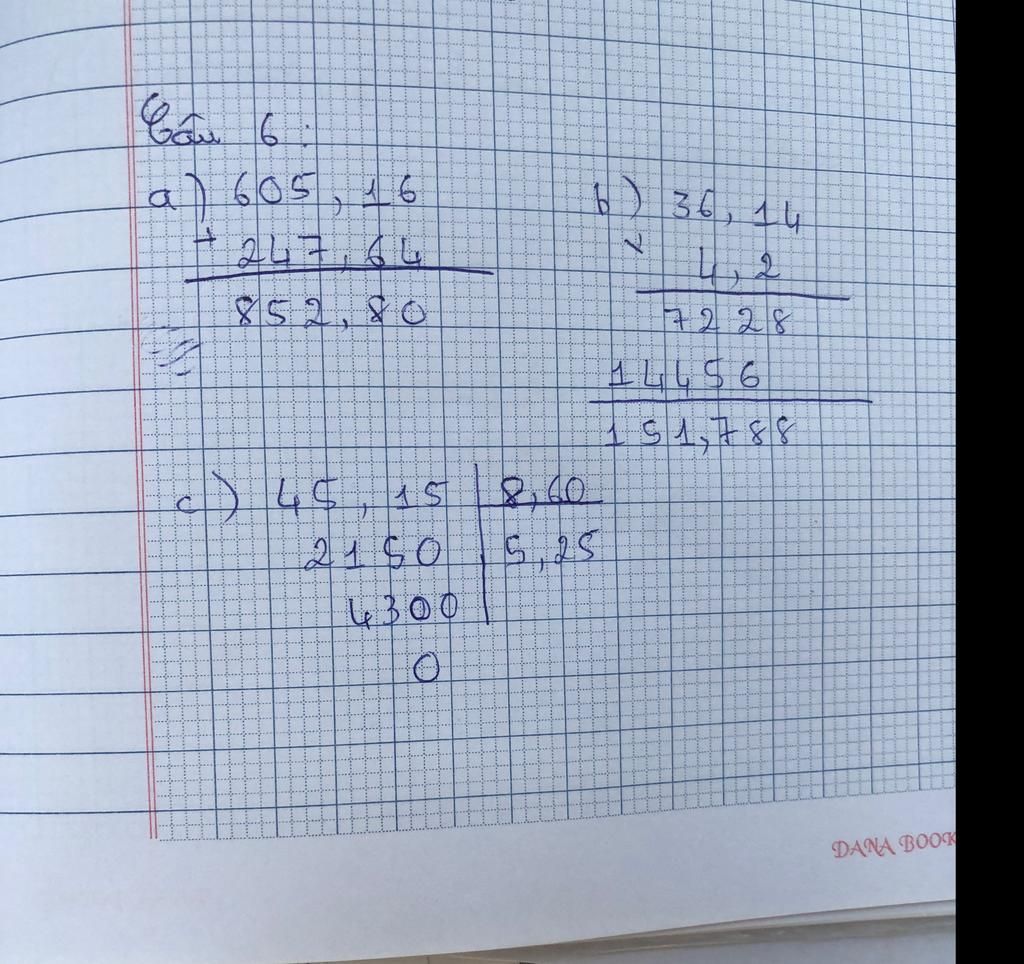 Câu 6:
a) 605,16
+ 247,64
852,80
b) 36,14
× 4,2
7228
14456
151,788
c) 45,15 | 8,60
2150 | 5,25
4300
0
DANA BOOK